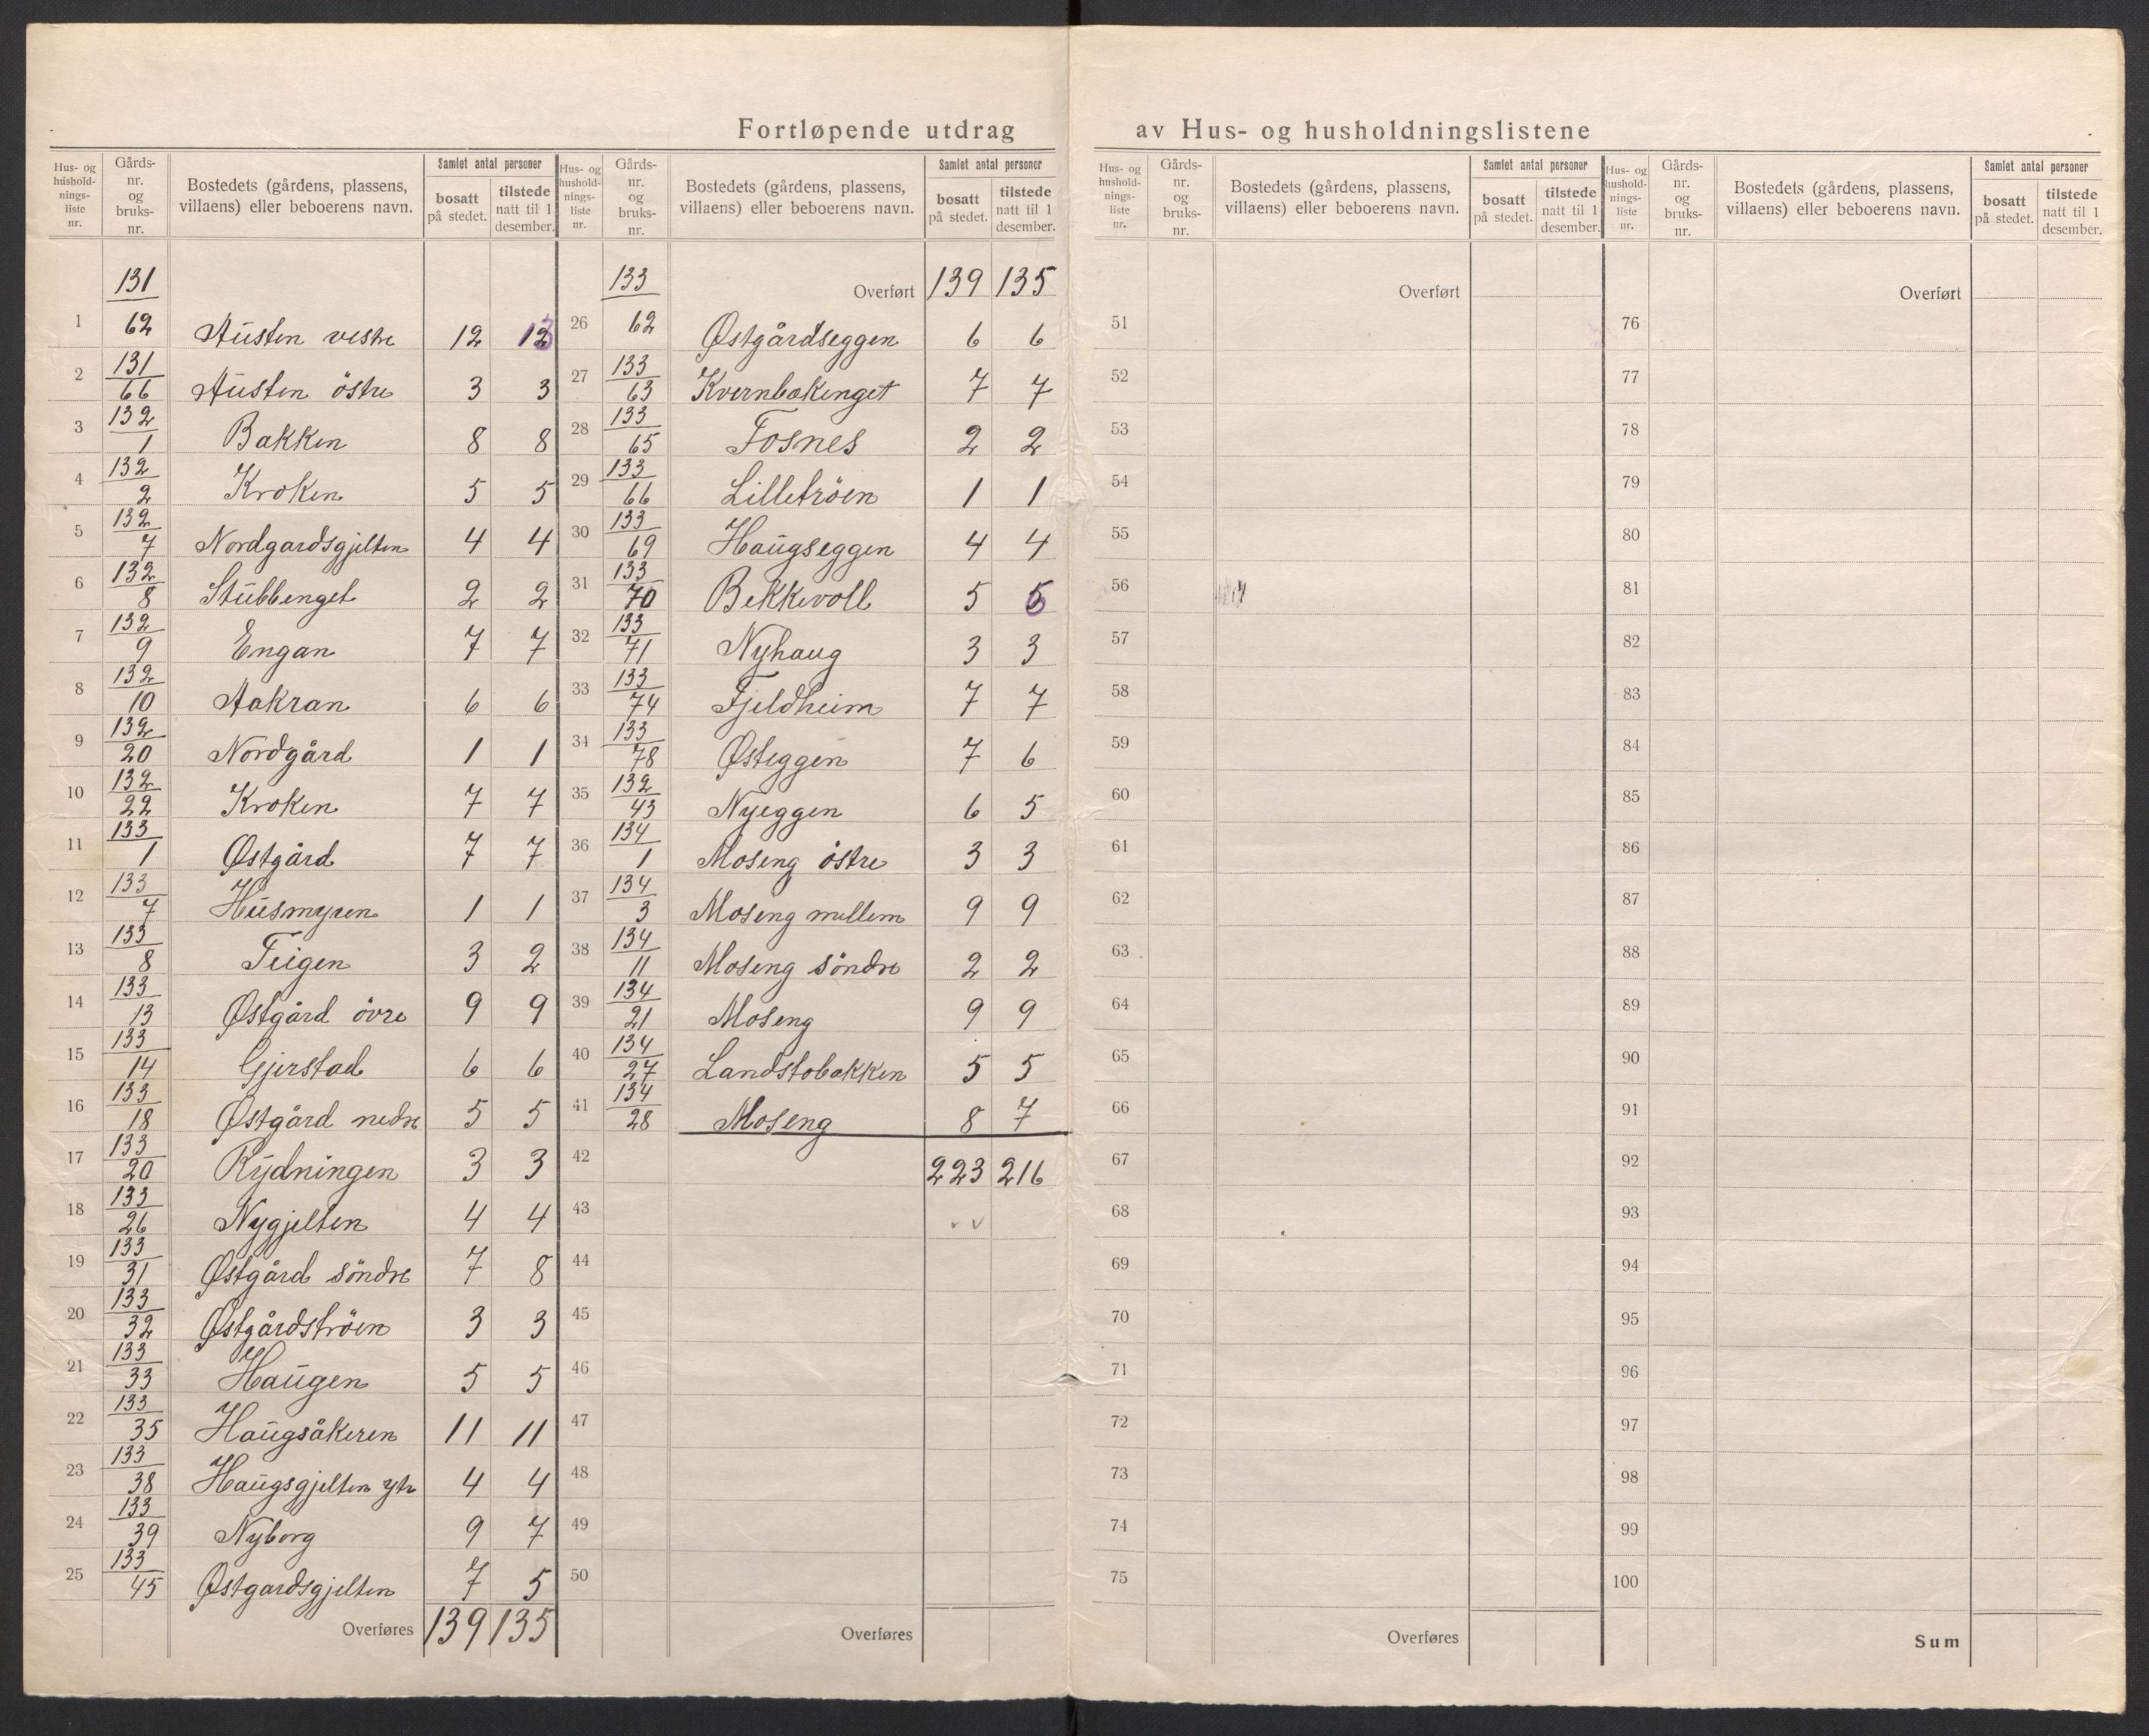 Fortløpende utdrag av Hus- og husholdningslistene
Hus- og husholdnings-liste nr. | Gårds-nr. og bruks-nr. | Bostedets (gårdens, plassens, villaens) eller beboerens navn. | Samlet antal personer bosatt på stedet. | tilstede natt til 1 desember.
1 131/62 Austen vestre 12 12
2 131/66 Austen östre 3 3
3 132/1 Bakken 8 8
4 132/2 Kroken 5 5
5 132/7 Nordgardsgjelten 4 4
6 132/8 Stubbenget 2 2
7 132/9 Engan 7 7
8 132/10 Aakran 6 6
9 132/20 Nordgård 1 1
10 132/22 Kroken 7 7
11 133/1 Østgård 7 7
12 133/7 Husmyren 1 1
13 133/8 Teigen 3 2
14 133/13 Østgård övre 9 9
15 133/14 Gjerstad 6 6
16 133/18 Østgård nedre 5 5
17 133/20 Rydningen 3 3
18 133/26 Nygjelten 4 4
19 133/31 Østgård söndre 7 8
20 133/32 Østgårdströen 3 3
21 133/33 Haugen 5 5
22 133/35 Haugsåkeren 11 11
23 133/38 Haugsgjelten ytre 4 4
24 133/39 Nyborg 9 7
25 133/45 Østgardsgjelten 7 5
Overføres 139 135
Hus- og husholdnings-liste nr. | Gårds-nr. og bruks-nr. | Bostedets (gårdens, plassens, villaens) eller beboerens navn. | Samlet antal personer bosatt på stedet. | tilstede natt til 1 desember.
Overført 139 135
26 133/62 Østgårdseggen 6 6
27 133/63 Kvernbakenget 7 7
28 133/65 Fosnes 2 2
29 133/66 Lilletröen 1 1
30 133/69 Haugseggen 4 4
31 133/70 Bekkevoll 5 5
32 133/71 Nyhaug 3 3
33 133/74 Fjeldheim 7 7
34 133/78 Østeggen 7 6
35 132/43 Nyeggen 6 5
36 134/1 Moseng östre 3 3
37 134/3 Moseng mellem 9 9
38 134/11 Moseng söndre 2 2
39 134/21 Moseng 9 9
40 134/27 Landstobakken 5 5
41 134/28 Moseng 8 7
42 223 216
43
44
45
46
47
48
49
50
Overføres
Hus- og husholdnings-liste nr. | Gårds-nr. og bruks-nr. | Bostedets (gårdens, plassens, villaens) eller beboerens navn. | Samlet antal personer bosatt på stedet. | tilstede natt til 1 desember.
Overført
51
52
53
54
55
56
57
58
59
60
61
62
63
64
65
66
67
68
69
70
71
72
73
74
75
Overføres
Hus- og husholdnings-liste nr. | Gårds-nr. og bruks-nr. | Bostedets (gårdens, plassens, villaens) eller beboerens navn. | Samlet antal personer bosatt på stedet. | tilstede natt til 1 desember.
Overført
76
77
78
79
80
81
82
83
84
85
86
87
88
89
90
91
92
93
94
95
96
97
98
99
100
Sum